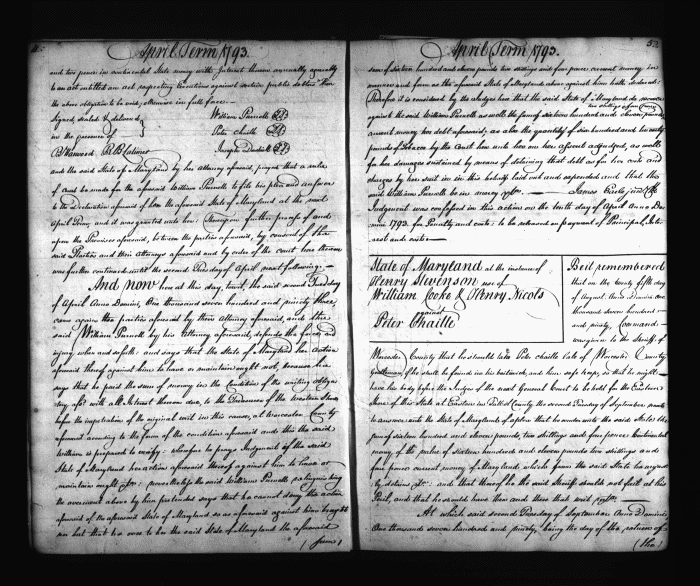 April Term 1793.
and two pence in continental State money with Interest thereon annually agreeably
to an act entitled an act respecting Executions against certain public debtors then
the above obligation to be void, otherwise in full force.
signed sealed & delivered
in the presence of
William Purnell
Peter Chaille
Joseph Dashiell
and the said State of Maryland by her attorney aforesaid, prayed that a rule
of Court be made for the aforesaid William Purnell to file his plea and answer
to the declaration aforesaid of her the aforesaid State of Maryland at the next
April Term, and it was granted unto her: Thereupon further process of and
upon the Premises aforesaid, between the parties aforesaid, by consent of the
said Parties and their Attorneys aforesaid and by order of the court here thereon
was further continued until the second Tuesday of April next following.
And now here at this day, to wit, the said second Tuesday
of April Anno Domini, One thousand seven hundred and ninety three
come again the parties aforesaid by their Attorney aforesaid, and the
said William Purnell by his Attorney aforesaid, defends the force and
injury when and so forth: and says that the state of Maryland her action
aforesaid thereof against him to have or maintain ought not, because he
says that he paid the sum of money in the Condition of the writing obliga
tory with all Interest thereon due, to the Treasurer of the Western Shore
before the impetration of the original writ in this cause, at Worcester County
aforesaid according to the form of the condition aforesaid and this the said
William is prepared to verify: wherefore he prays Judgment if the said
State of Maryland her action aforesaid thereof against him to have or
maintain ought &c: nevertheless the said William Purnell relinquishing
the averment above by him pretended says that he cannot deny the action
aforesaid of the aforesaid State of Maryland so as aforesaid against him brought
nor but that he owes to her the said State of Maryland the aforesaid
(sum)
April Term 1793.
sum of sixteen hundred and eleven pounds two shillings and four pence current money in
manner and form as the aforesaid State of Maryland above against him hath declared:
Therefore it is considered by the Judges here that the said State of Maryland do recover
two shillings & four pence
against the said William Purnell as well the sum of sixteen hundred and eleven pounds
current money her debt aforesaid, as also the quantity of six hundred and twenty
pounds of Tobacco by the Court here unto her on her assent adjudged, as well
for her damages sustained by means of detaining that debt as for her costs and
charges by her suit in this behalf laid out and expended and that the
said William Purnell be in mercy &c.
Judgment was confessed in this action on the tenth day of April Anno Do
mini 1793, for Penalty and costs: to be released on payment of Principal, Inte
rest and costs
State of Maryland at the instance of
Henry Stevenson use of
William Cooke & Henry Nicols
against
Peter Chaille
Be it remembered
that on the twenty fifth day
of August Anno Domini one
thousand seven hundred
and ninety, Command
was given to the Sheriff of
Worcester County that he should take Peter Chaille late of Worcester County
Gentleman, if he should be found in his bailiwick, and him safe keep, so that he might
have his body before the Judges of the next General Court to be held for the Eastern
shore of this State at Easton in Talbot County the second Tuesday of September next
to answer unto the State of Maryland of a plea that he render unto the said State the
sum of sixteen hundred and eleven pounds, two shillings and four pence Continental
money, of the value of sixteen hundred and eleven pounds two shillings and
four pence current money of Maryland which from the said State he unjust
ly detains &c: and that thereof he the said Sheriff should not fail at his
Peril, and that he should have then and there that writ, &c.
At which said second Tuesday of September Anno Domini
One thousand seven hundred and ninety, being the day of the return of
(the)